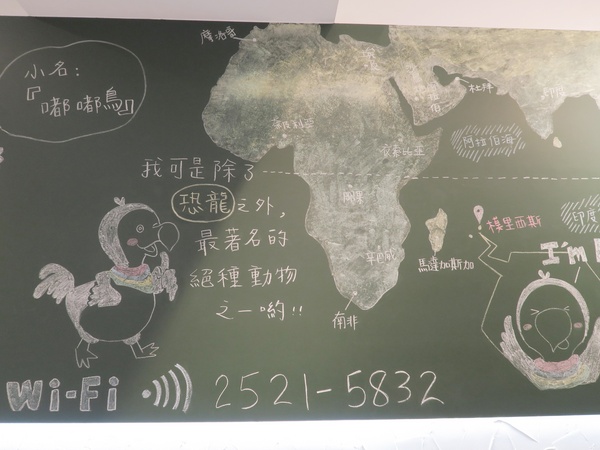 小名：
『嘟嘟鳥』
我可是除了
恐龍之外，
最著名的
絕種動物
之一喲!!
Wi-Fi 2521-5832
摩洛哥
杜拜
印度
阿拉伯海
衣索比亞
模里西斯
馬達加斯加
南非
I'm